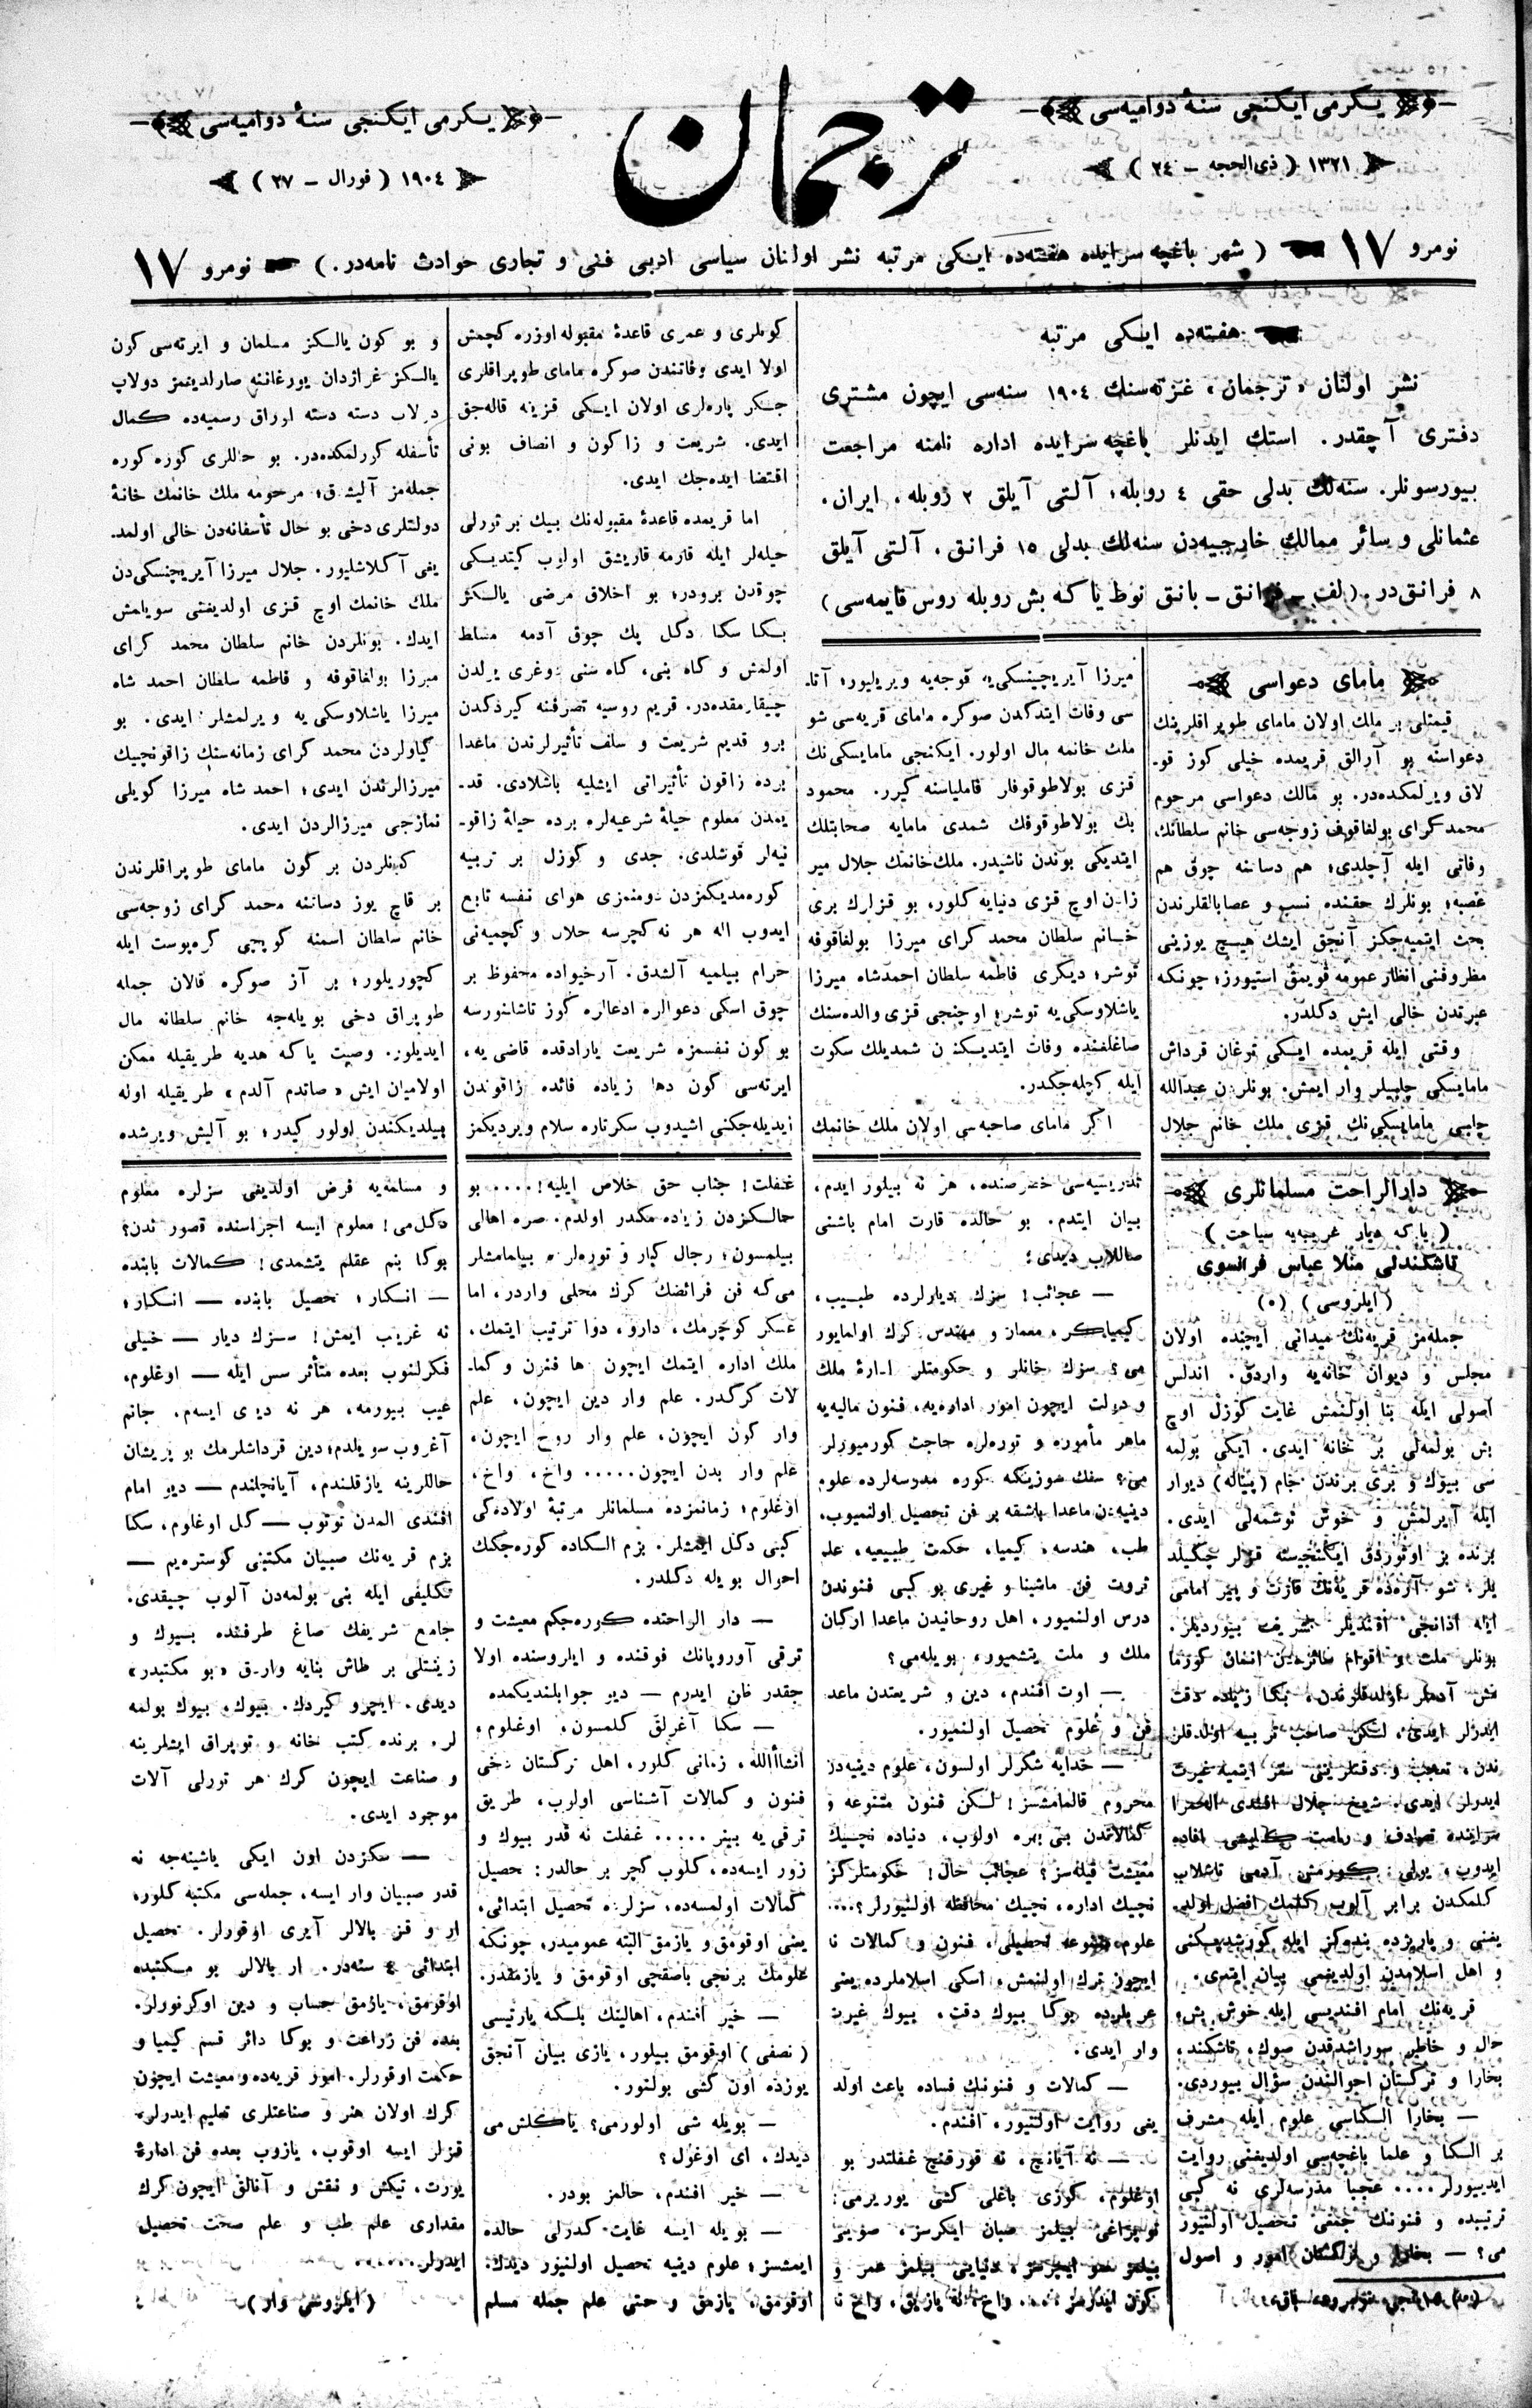 يكرمی ايكنجی سنهٔ دواميه‌سی
١٣٢١ ( ذی‌الحجه – ٢٤ )
ترجمان
يكرمی ايكنجی سنهٔ دواميه‌سی
١٩٠٤ ( فورال – ٢٧ )
نومرو ١٧ ( شهر باغچه سرايده هفته‌ده ايكی مرتبه نشر اولنان سياسی ادبی فنی و تجاری حوادث نامه‌در. ) نومرو ١٧
هفته‌ده ايكی مرتبه
نشر اولنان «ترجمان» غزته‌سنك ١٩٠٤ سنه‌سی ايچون مشتری
دفتری آچقدر. استك ايدنلر باغچه سرايده اداره نامنه مراجعت
بيورسونلر. سنه‌لك بدلی حقی ٤ روبله؛ آلتی آيلق ٢ روبله، ايران،
عثمانلی و سائر ممالك خارجيه‌دن سنه‌لك بدلی ١٥ فرانق، آلتی آيلق
٨ فرانق‌در. (لف – فرانق – بانق نوط ياكه بش روبله روس قايمه‌سی)
مامای دعواسی
قيمتلی بر ملك اولان مامای طوپراقلرينك
دعواسنه بو آرالق قريمده خيلی كوز قو-
لاق ويرلمكده‌در. بو مالك دعواسی مرحوم
محمد كرای بولغاقوف زوجه‌سی خانم سلطانك
وفاتی ايله آچلدی؛ هم دساتنه چوق هم
غصبه؛ بونلرك حقنده نسب و عصابالقلرندن
بحث ايتميه‌جكز آنجق ايشك هيچ يوزينی
مظروفنی انظار عمومه قويمق استيورز؛ چونكه
عبرتدن خالی ايش دكلدر.
وقتی ايله قريمده ايكی توغان قرداش
مامايسكی چلبيلر وار ايمش. بونلردن عبدالله
چلبی مامايسكی‌نك قيزی ملك خانم جلال
ميرزا آيريچينسكی‌يه قوجه‌يه ويريليور؛ آتا-
سی وفات ايتدكدن صوكره مامای قريه‌سی شو
ملك خانمه مال اولور. ايكنجی مامايسكی‌نك
قزی بولاطوقوفلر فاميلياسنه كيرر. محمود
بك بولاطوقوفك شمدی مامايه صحابتلك
ايتديكی بوندن ناشيدر. ملك‌خانمك جلال مير
زادن اوچ قزی دنيايه كلور، بو قزلرك بری
خانم سلطان محمد كرای ميرزا بولغاقوفه
توشر؛ ديكری فاطمه سلطان احمدشاه ميرزا
ياشلاوسكی‌يه توشر؛ اوچنجی قزی والده‌سنك
صاغلغنده وفات ايتديكندن شمديلك سكوت
ايله كچله‌جكدر.
اكر مامای صاحبه‌سی اولان ملك خانمك
كونلری و عمری قاعدهٔ مقبوله اوزره كچمش
اولا ايدی وفاتندن صوكره مامای طوپراقلری
جكر پاره‌لری اولان ايكی قزينه قاله‌جق
ايدی. شريعت و زاكون و انصاف بونی
اقتضا ايده‌جك ايدی.
اما قريمده قاعدهٔ مقبوله‌نك بيك بر تورلی
حيله‌لر ايله قارمه قاريشق اولوب كيتديكی
چوقدن برودر؛ بو اخلاق مرضی يالكز
بكا سكا دكل پك چوق آدمه مسلط
اولمش و كاه بنی، كاه سنی دوغری يولدن
چيقارمقده‌در. قريم روسيه تصرفنه كيردكدن
برو قديم شريعت و سلف تأثيرلرندن ماعدا
برده زاقون تأثيراتی ايشليه باشلادی. قد-
يمدن معلوم حيلهٔ شرعيه‌لره برده حيلهٔ زاقو-
نيه‌لر قوشلدی. جدی و كوزل بر تربيه
كوره‌مديكمزدن دومنمزی هوای نفسه تابع
ايدوب اله هر نه كچرسه حلال و كچميه‌نی
حرام بيلميه آلشدق. آرخيواده محفوظ بر
چوق اسكی دعوالره ادعالره كوز تاشلنورسه
بو كون نفسمزه شريعت يارادقده قاضی‌يه،
ايرته‌سی كون دها زياده فائده زاقوندن
ايديله‌جكنی اشيدوب سكرتاره سلام ويرديكمز
و بو كون يالكز مسلمان و ايرته‌سی كون
يالكز غراژدان يورغاننه صارلديغمز دولاب
دولاب دسته دسته اوراق رسميه‌ده كمال
تأسفله كورلمكده‌در. بو حاللری كوره كوره
جمله‌مز آليشدق؛ مرحومه ملك خانمك خانهٔ
دولتلری دخی بو حال تأسفانه‌دن خالی اولمد-
يغی آكلاشليور. جلال ميرزا آيريچنسكی‌دن
ملك خانمك اوچ قزی اولديغنی سويلمش
ايدك. بونلردن خانم سلطان محمد كرای
ميرزا بولغاقوفه و فاطمه سلطان احمد شاه
ميرزا ياشلاوسكی يه ويرلمشلر ايدی. بو
كياولردن محمد كرای زمانه‌سنك زاقونجيك
ميرزالرندن ايدی؛ احمد شاه ميرزا كويلی
نمازجی ميرزالردن ايدی.
كونلردن بر كون مامای طوپراقلرندن
بر قاچ يوز دساتنه محمد كرای زوجه‌سی
خانم سلطان اسمنه كوپچی كره‌پوست ايله
كچوريلور؛ بر آز صوكره قالان جمله
طوپراق دخی بويله‌جه خانم سلطانه مال
ايديلور. وصيت ياكه هديه طريقيله ممكن
اولاميان ايش «صاتدم آلدم» طريقيله اوله
بيلديكندن اولور كيدر؛ بو آليش ويرشده
دارالراحت مسلمانلری
( ياكه ديار غريبيه سياحت )
تاشكندلی منلا عباس فرانسوی
( ايلروسی ) (٥)
جمله‌مز قريه‌نك ميدانی ايچنده اولان
مجلس و ديوان خانه‌يه واردق. اندلس
اصولی ايله بنا اولنمش غايت كوزل اوچ
بش بولمه‌لی بر خانه ايدی. ايكی بولمه
سی بيوك و بری برندن جام (پيتاله) ديوار
ايله آيرلمش و خوش توشمه‌لی ايدی.
برنده بز اوتوردق ايكنجيسنه قزلر چكيلد
يلر. شو آره‌ده قريه‌نك قارت و پير امامی
ايله اذانجی افنديلر تشريف بيورديلر.
بونلر ملت و اقوام سائره‌دن انسان كورما
مش آدملر اولدقلرندن، بكا زياده دقت
ايدرلر ايدی، لكن صاحب تربيه اولدقلر
ندن، تعجب و دقتلرينی ستر ايتميه غيرت
ايدرلر ايدی. شيخ جلال افندی الحمرا
سراينده تصادف و راست كليشی افاده
ايدوب، يولی كورمش آدمی تاشلاب
كلمكدن برابر آلوب كلمك افضل اولد
يغنی و پاريزده بنده‌كز ايله كورشديكنی
و اهل اسلامدن اولديغمی بيان ايتدی.
قريه‌نك امام افنديسی ايله خوش بش،
حال و خاطر سوراشدقدن صوك، تاشكند،
بخارا و تركستان احوالندن سؤال بيوردی.
— بخارا الكاسی علوم ايله مشرف
بر الكا و علما باغچه‌سی اولديغنی روايت
ايدييورلر.... عجبا مدرسه‌لری نه كبی
ترتيبده و فنونك جمعی تحصيل اولنيور
می؟ — بخارا و تركستان امور و اصول
تدريسيه‌سی خصوصنده، هر نه بيلور ايدم،
بيان ايتدم. بو حالده قارت امام باشنی
صاللاب ديدی؛
— عجائب! سزك ديارلرده طبيب،
كيمياكر، معمار و مهندس كرك اولمايور
می؟ سزك خانلر و حكومتلر ادارهٔ ملك
و دولت ايچون امور اداره‌يه، فنون ماليه‌يه
ماهر مأموره و توره‌لره حاجت كورميورلر
می؟ سنك سوزينكه كوره مدرسه‌لرده علوم
دينيه‌دن ماعدا باشقه بر فن تحصيل اولنميوب،
طب، هندسه، كيميا، حكمت طبيعيه، علم
ثروت فن ماشينا و غيری بو كبی فنوندن
درس اولنميور، اهل روحانيدن ماعدا اركان
ملك و ملت يتشميور، بويله‌می؟
— اوت افندم، دين و شريعتدن ماعد
فن و علوم تحصيل اولنميور.
— خدايه شكرلر اولسون، علوم دينيه‌دن
محروم قالمامشسز! لكن فنون متنوعه و
كمالاتدن بی بهره اولوب، دنياده نچيك
معيشت قيله‌سز؟ عجائب حال! حكومتلركز
نچيك اداره، نچيك محافظه اولنيورلر؟....
علوم متنوعه تحصيلی، فنون و كمالات نا
ايچون ترك اولنمش، اسكی اسلاملرده يعنی
عربلرده بوكا بيوك دقت، بيوك غيرت
وار ايدی.
— كمالات و فنونك فساده باعث اولد
يغی روايت اولنيور، افندم.
— نه آيانچ، نه قورقنچ غفلتدر بو
اوغلوم، كوزی باغلی كشی يوريرمی؛
توپراغی بيلمز صبان ايكرسز، صوينی
بيلمز صو ايچرسز، دنيايی بيلمز عمر و
كون ايدرسز.... واخ، نه يازيق، واخ نا
غفلت! جناب حق خلاص ايليه!.... بو
حالكزدن زياده مكدر اولدم. صره اهالی
بيلمسون؛ رجال كبار و توره‌لر ده بيلمامشلر
می‌كه فن فرائضك كرك محلی واردر، اما
عسكر كوچرمك، دارو، دوا ترتيب ايتمك،
ملك اداره ايتمك ايچون ها فنون و كما-
لات كركدر. علم وار دين ايچون، علم
وار كون ايچون، علم وار روح ايچون،
علم وار بدن ايچون..... واخ، واخ،
اوغلوم؛ زمانمزده مسلمانلر مرتبهٔ اولاده‌كی
كبی دكل ايمشلر. بزم الكاده كوره‌جكك
احوال بويله دكلدر.
— دار الراحتده كوره‌جكم معيشت و
ترقی آوروپانك فوقنده و ايلروسنده اولا
جقدر ظن ايدرم — ديو جوابلنديكمده
— سكا آغرلق كلمسون، اوغلوم،
انشاأالله، زمانی كلور، اهل تركستان دخی
فنون و كمالات آشناسی اولوب، طريق
ترقی يه بينر..... غفلت نه قدر بيوك و
زور ايسه‌ده، كلوب كچر بر حالدر: تحصيل
كمالات اولمسه‌ده، سزلرده تحصيل ابتدائی،
يعنی اوقومق و يازمق البته عموميدر، چونكه
علومك برنجی باصقچی اوقومق و يازمقدر.
— خير افندم، اهالينك بلكه يارتيسی
(نصفی) اوقومق بيلور، يازی بيان آنجق
يوزده اون كشی بولنور.
— بويله شی اولورمی؟ ياكلش می
ديدك، ای اوغول؟
— خير افندم، حالمز بودر.
— بويله ايسه غايت كدرلی حالده
ايمشسز؛ علوم دينيه تحصيل اولنيور ديدك؛
اوقومق، يازمق و حتی علم جمله مسلم
و مسلمه‌يه فرض اولديغی سزلره معلوم
دكل‌می! معلوم ايسه اجراسنده قصور ندن؟
بوكا بنم عقلم يتشمدی! كمالات بابنده
— انكار؛ تحصيل بابنده — انكار؛
نه غريب ايمش! سزك ديار — خيلی
فكرلنوب بعده متأثر سس ايله — اوغلوم،
عيب بيورمه، هر نه ديدی ايسه‌م. جانم
آغروب سويلدم؛ دين قرداشلرمك بو پريشان
حاللرينه يازقلندم، آيانچلندم — ديو امام
افندی المدن توتوب — كل اوغلوم، سكا
بزم قريه‌نك صبيان مكتبنی كوستره‌يم —
تكليفی ايله بنی بولمه‌دن آلوب چيقدی.
جامع شريفك صاغ طرفنده بيوك و
زينتلی بر طاش بنايه واردق «بو مكتبدر»
ديدی. ايچرو كيردك. بيوك، بيوك بولمه
لر، برنده كتب خانه و توپراق ايشلرينه
و صناعت ايچون كرك هر تورلی آلات
موجود ايدی.
— سكزدن اون ايكی ياشينه‌جه نه
قدر صبيان وار ايسه، جمله‌سی مكتبه كلور،
ار و قز بالالر آيری اوقورلر. تحصيل
ابتدائی ٤ سنه‌در. ار بالالر بو مكتبده
اوقومق، يازمق حساب و دين اوكرنورلر.
بعده فن زراعت و بوكا دائر قسم كيميا و
حكمت اوقورلر. امور قريه‌ده و معيشت ايچون
كرك اولان هنر و صناعتلری تعليم ايدرلر.
قزلر ايسه اوقوب، يازوب بعده فن ادارهٔ
يورت، تيكش و نقش و آنالق ايچون كرك
مقداری علم طب و علم صحت تحصيل
ايدرلر......
( ايلروسی وار )